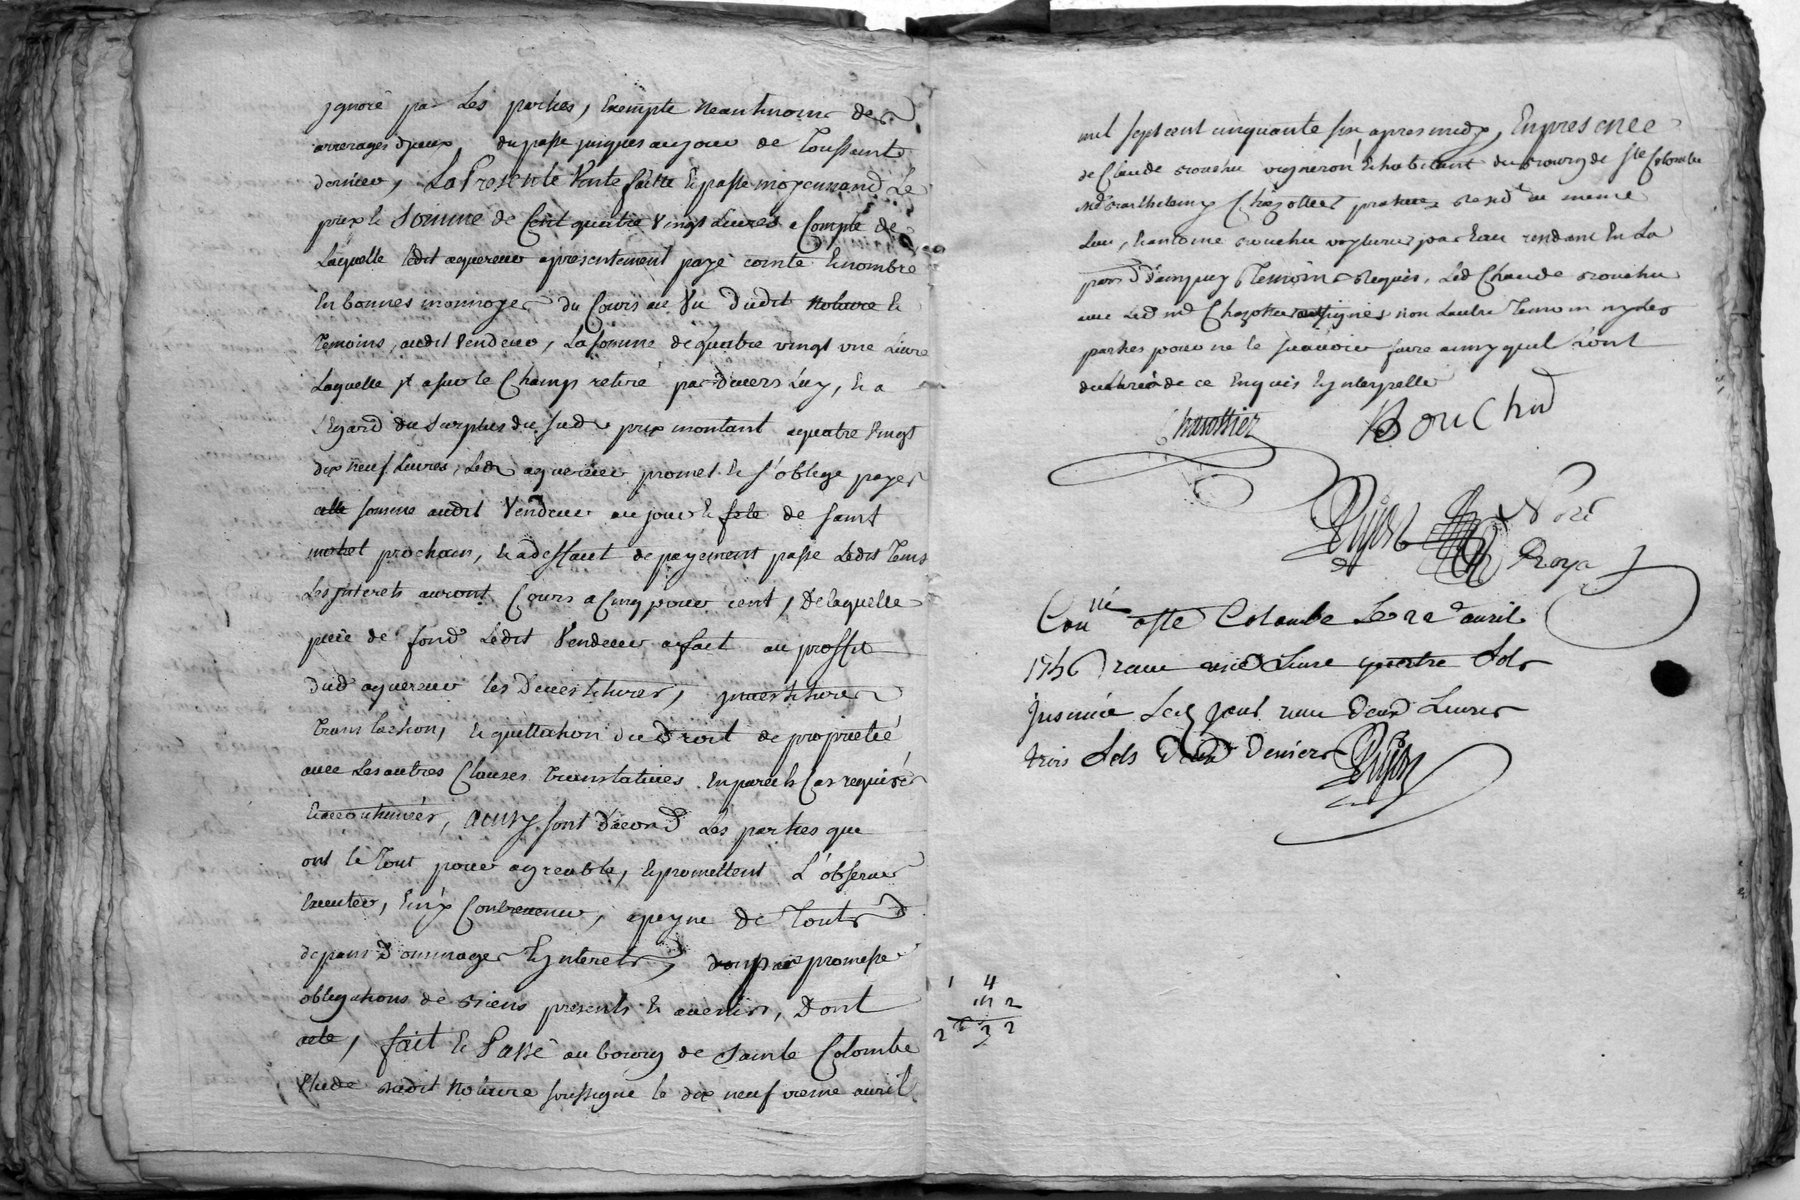 ignoré par les parties, Exempte neantmoins des
arrerages d'jceux, du passé jusques au jour de Toussaint
dernier, La Presente Vente faitte & passé moyennand Le
prix & Somme de Cent quatre Vingt Livres a Compte de
Laquelle ledit aquereur a presentement payé comté & nombré
En bonnes monnoyes du Cours au Vu dudit Notaire &
Temoins, audit Vendeur, La somme de quatre vingt une Livre
Laquelle jl a sur le Champ retiré par devers Luy, & a
l'Egard du Surplus du sud prix montant a quatre Vingt
dix neuf Livres, Led aquereur promet & s'oblige payer
cette somme audit Vendeur au jour & fete de saint
michel prochain, & a deffaut de payement passé Ledit Tems
Les jnterets auront Cours a Cinq pour cent, De laquelle
piece de fond Ledit Vendeur a fait au proffit
dud aquereur les Devestitures, jnvestitures
translation, & quittation du Droit de proprieté
avec Les autres Clauses translatives En pareils Cas requises
& accoutumées, ainsy sont d'acord Les parties que
ont le Tout pour agreable, & promettent L'observer
Executer, & n'y Contrevenir, a peyne de Touts
depans Dommages & jnterets, promesse
obligations de Biens presents & avenir, Dont
acte, fait & Passé au bourg de Sainte Colombe
Etude dudit Notaire soussigné le dix neuf vieme avril
mil sept cent cinquante six apres midy, En presence
de Claude Bouchu vigneron & habitant du Bourg de Ste Colombe
md Barthelemy praticien Resid au meme
Lieu, & antoine Bouchu voyturier par Eau residant En La
parr d'ampuy Temoins Requis, Led Claude Bouchu
avec Led md soussignés non L'autre Temoin ny les
parties pour ne le scauoir faire ainsy quil L'ont
declaré de ce Enquis & jnterpellé
Bouchu
Dijon Nore
Roya
Con lle a Ste Colombe Le 22 avril
1756 reçu une Livre quatre Sols
Jnsinué Led jour reçu deux Livres
trois Sols deux Deniers Dijon
1 4
2
2 3 2